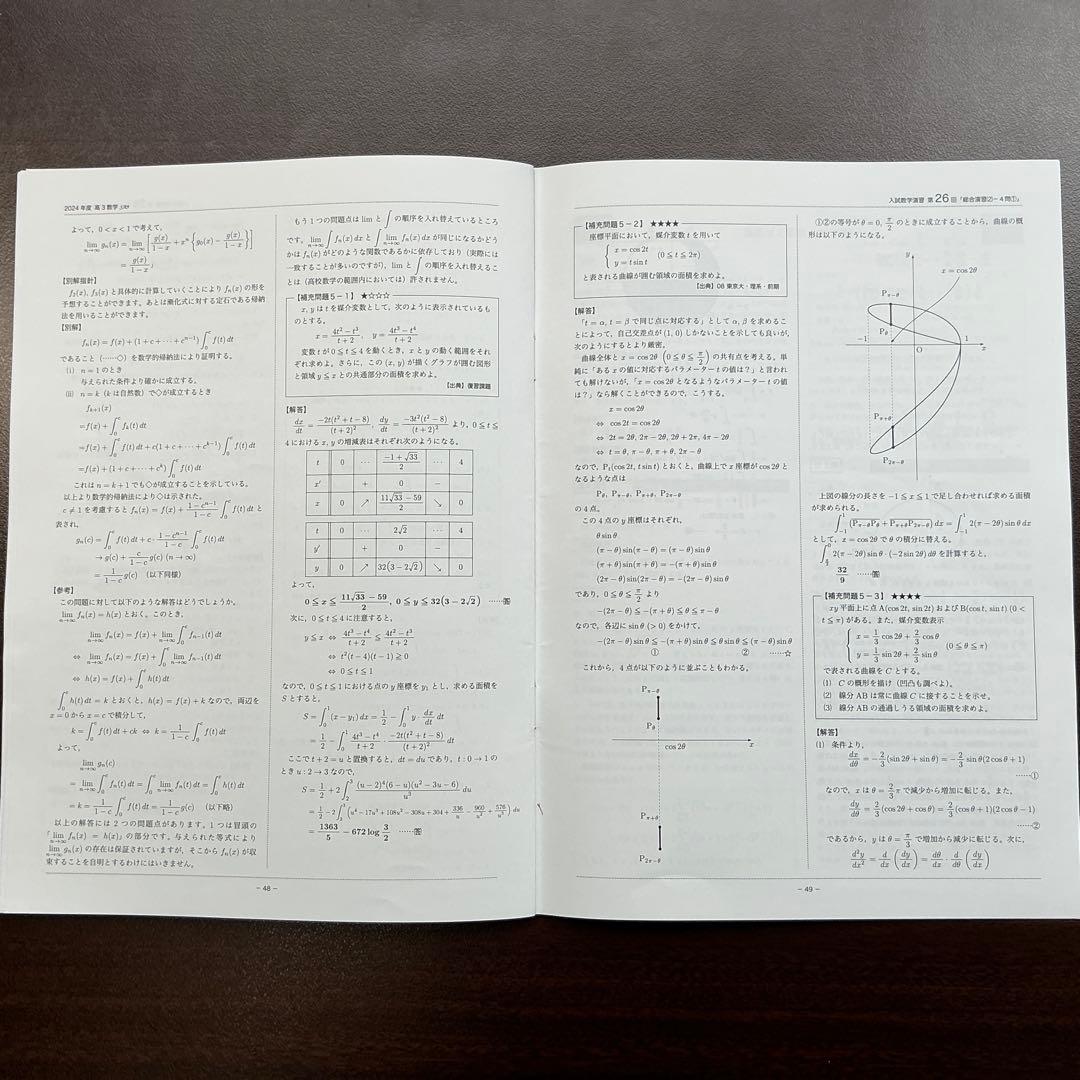 2024 年度 高 3 数学
よって，0 < x < 1 で考えて，
lim_{n→∞} g_n(x) = lim_{n→∞} [ g(x)/(1−x) + x^n { g_0(x) − g(x)/(1−x) } ]
= g(x)/(1−x)
【別解指針】
f_2(x), f_3(x) と具体的に計算していくことにより f_n(x) の形を
予想することができます。あとは漸化式に対する定石である帰納
法を用いることができます。
【別解】
f_n(x) = f(x) + (1 + c + ⋯ + c^{n−1}) ∫_0^c f(t) dt
であること（……◇）を数学的帰納法により証明する。
(i) n = 1 のとき
与えられた条件より確かに成立する。
(ii) n = k（k は自然数）で◇が成立するとき
f_{k+1}(x)
= f(x) + ∫_0^c f_k(t) dt
= f(x) + ∫_0^c f(t) dt + c(1 + c + ⋯ + c^{k−1}) ∫_0^c f(t) dt
= f(x) + (1 + c + ⋯ + c^k) ∫_0^c f(t) dt
これは n = k + 1 でも◇が成立することを示している。
以上より数学的帰納法により◇は示された。
c ≠ 1 を考慮すると f_n(x) = f(x) + (1−c^{n−1})/(1−c) ∫_0^c f(t) dt と
表され，
g_n(c) = ∫_0^c f(t) dt + c · (1−c^{n−1})/(1−c) ∫_0^c f(t) dt
→ g(c) + c/(1−c) g(c) (n → ∞)
= 1/(1−c) g(c) （以下同様）
【参考】
この問題に対して以下のような解答はどうでしょうか。
lim_{n→∞} f_n(x) = h(x) とおく。このとき，
lim_{n→∞} f_n(x) = f(x) + lim_{n→∞} ∫_0^c f_{n−1}(t) dt
⇔ lim_{n→∞} f_n(x) = f(x) + ∫_0^c lim_{n→∞} f_{n−1}(t) dt
⇔ h(x) = f(x) + ∫_0^c h(t) dt
∫_0^c h(t) dt = k とおくと，h(x) = f(x) + k なので，両辺を
x = 0 から x = c で積分して，
k = ∫_0^c f(t) dt + ck ⇔ k = 1/(1−c) ∫_0^c f(t) dt
よって，
lim_{n→∞} g_n(c)
= lim_{n→∞} ∫_0^c f_n(t) dt = ∫_0^c lim_{n→∞} f_n(t) dt = ∫_0^c h(t) dt
= k = 1/(1−c) ∫_0^c f(t) dt = 1/(1−c) g(c) （以下略）
以上の解答には 2 つの問題点があります。1 つは冒頭の
「lim_{n→∞} f_n(x) = h(x)」の部分です。与えられた等式により
lim_{n→∞} g_n(x) の存在は保証されていますが，そこから f_n(x) が収
束することを自明とするわけにはいきません。
もう 1 つの問題点は lim と ∫ の順序を入れ替えているところ
です。lim_{n→∞} ∫ f_n(x) dx と ∫ lim_{n→∞} f_n(x) dx が同じになるかどう
かは f_n(x) がどのような関数であるかに依存しており（実際には
一致することが多いのですが），lim と ∫ の順序を入れ替えるこ
とは（高校数学の範囲内においては）許されません。
【補充問題５−１】★☆☆☆
x, y は t を媒介変数として，次のように表示されているも
のとする。
x = (4t^2 − t^3)/(t + 2), y = (4t^3 − t^4)/(t + 2)
変数 t が 0 ≦ t ≦ 4 を動くとき，x と y の動く範囲をそれ
ぞれ求めよ。さらに，この (x, y) が描くグラフが囲む図形
と領域 y ≦ x との共通部分の面積を求めよ。
【出典】復習課題
【解答】
dx/dt = −2t(t^2 + t − 8)/(t + 2)^2, dy/dt = −3t^2(t^2 − 8)/(t + 2)^2 より，0 ≦ t ≦
4 における x, y の増減表はそれぞれ次のようになる。
t 0 ⋯ (−1 + √33)/2 ⋯ 4
x′ + 0 −
x 0 ↗ (11√33 − 59)/2 ↘ 0
t 0 ⋯ 2√2 ⋯ 4
y′ + 0 −
y 0 ↗ 32(3 − 2√2) ↘ 0
よって，
0 ≦ x ≦ (11√33 − 59)/2, 0 ≦ y ≦ 32(3 − 2√2) ……答
次に，0 ≦ t ≦ 4 に注意すると，
y ≦ x ⇔ (4t^3 − t^4)/(t + 2) ≦ (4t^2 − t^3)/(t + 2)
⇔ t^2(t − 4)(t − 1) ≧ 0
⇔ 0 ≦ t ≦ 1
なので，0 ≦ t ≦ 1 における点の y 座標を y_1 とし，求める面積を
S とすると，
S = ∫_0^1 (x − y_1) dx = 1/2 − ∫_0^1 y · dx/dt dt
= 1/2 − ∫_0^1 (4t^3 − t^4)/(t + 2) · −2t(t^2 + t − 8)/(t + 2)^2 dt
ここで t + 2 = u と置換すると，dt = du であり，t : 0 → 1 の
とき u : 2 → 3 なので，
S = 1/2 + 2∫_2^3 (u − 2)^4(6 − u)(u^2 − 3u − 6)/u^3 du
= 1/2 − 2∫_2^3 (u^4 − 17u^3 + 108u^2 − 308u + 304 + 336/u − 960/u^2 + 576/u^3) du
= 1363/5 − 672 log 3/2 ……答
− 48 −
入試数学演習 第 26 回「総合演習②−4 問①」
【補充問題５−２】★★★★
座標平面において，媒介変数 t を用いて
{ x = cos 2t
{ y = t sin t (0 ≦ t ≦ 2π)
と表される曲線が囲む領域の面積を求めよ。
【出典】08 東京大・理系・前期
【解答】
「t = α, t = β で同じ点に対応する」として α, β を求めるこ
とによって，自己交差点が (1, 0) しかないことを示しても良いが，
次のようにするとより厳密。
曲線全体と x = cos 2θ (0 ≦ θ ≦ π/2) の共有点を考える。単
純に「ある x の値に対応するパラメーター t の値は？」と言われ
ても解けないが，「x = cos 2θ となるようなパラメーター t の値
は？」なら解くことができるので，こうする。
x = cos 2θ
⇔ cos 2t = cos 2θ
⇔ 2t = 2θ, 2π − 2θ, 2θ + 2π, 4π − 2θ
⇔ t = θ, π − θ, π + θ, 2π − θ
なので，P_t(cos 2t, t sin t) とおくと，曲線上で x 座標が cos 2θ と
なるような点は
P_θ, P_{π−θ}, P_{π+θ}, P_{2π−θ}
の 4 点。
この 4 点の y 座標はそれぞれ，
θ sin θ
(π − θ) sin(π − θ) = (π − θ) sin θ
(π + θ) sin(π + θ) = −(π + θ) sin θ
(2π − θ) sin(2π − θ) = −(2π − θ) sin θ
であり，0 ≦ θ ≦ π/2 より
−(2π − θ) ≦ −(π + θ) ≦ θ ≦ π − θ
なので，各辺に sin θ (> 0) をかけて，
−(2π − θ) sin θ ≦ −(π + θ) sin θ ≦ θ sin θ ≦ (π − θ) sin θ
① ② ……☆
これから，4 点が以下のように並ぶこともわかる。
P_{π−θ}
P_θ
cos 2θ
x
P_{π+θ}
P_{2π−θ}
①②の等号が θ = 0, π/2 のときに成立することから，曲線の概
形は以下のようになる。
y
x = cos 2θ
P_{π−θ}
P_θ
−1
O
1
x
P_{π+θ}
P_{2π−θ}
上図の線分の長さを −1 ≦ x ≦ 1 で足し合わせれば求める面積
が求められる。
∫_{−1}^1 (P_{π−θ}P_θ + P_{π+θ}P_{2π−θ}) dx = ∫_{−1}^1 2(π − 2θ) sin θ dx
として，x = cos 2θ で θ の積分に替える。
∫_{π/2}^0 2(π − 2θ) sin θ · (−2 sin 2θ) dθ を計算すると，
32/9 ……答
【補充問題５−３】★★★★
xy 平面上に点 A(cos 2t, sin 2t) および B(cos t, sin t) (0 <
t ≦ π) がある。また，媒介変数表示
{ x = 1/3 cos 2θ + 2/3 cos θ
{ y = 1/3 sin 2θ + 2/3 sin θ (0 ≦ θ ≦ π)
で表される曲線を C とする。
(1) C の概形を描け（凹凸も調べよ）。
(2) 線分 AB は常に曲線 C に接することを示せ。
(3) 線分 AB の通過しうる領域の面積を求めよ。
【解答】
(1) 条件より，
dx/dθ = −2/3 (sin 2θ + sin θ) = −2/3 sin θ(2 cos θ + 1)
……①
なので，x は θ = 2/3 π で減少から増加に転じる。また，
dy/dθ = 2/3 (cos 2θ + cos θ) = 2/3 (cos θ + 1)(2 cos θ − 1)
……②
であるから，y は θ = π/3 で増加から減少に転じる。次に，
d^2y/dx^2 = d/dx (dy/dx) = dθ/dx · d/dθ (dy/dx)
− 49 −